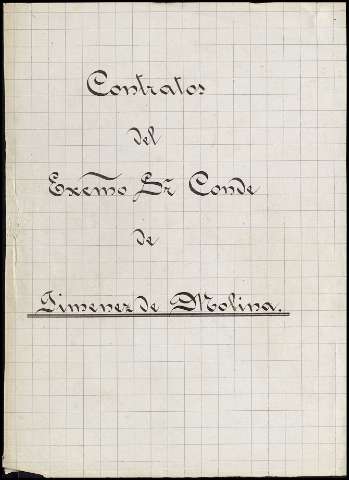 Contratos
del
Exemo Sr Conde
de
Jimenez de Molina.